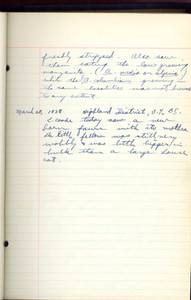 freshly stripped. Also saw
them eating the low growing
manzanita (A. media or
while the A. columbiana growing in
the same localities was not browsed
to any extent.
March 28, 1938 Highland District, V.I., B.C.
C. Cooke today saw a new-
born fawn with its mother
the little fellow was still very
wobbly & was little bigger in
bulk than a large house
cat.